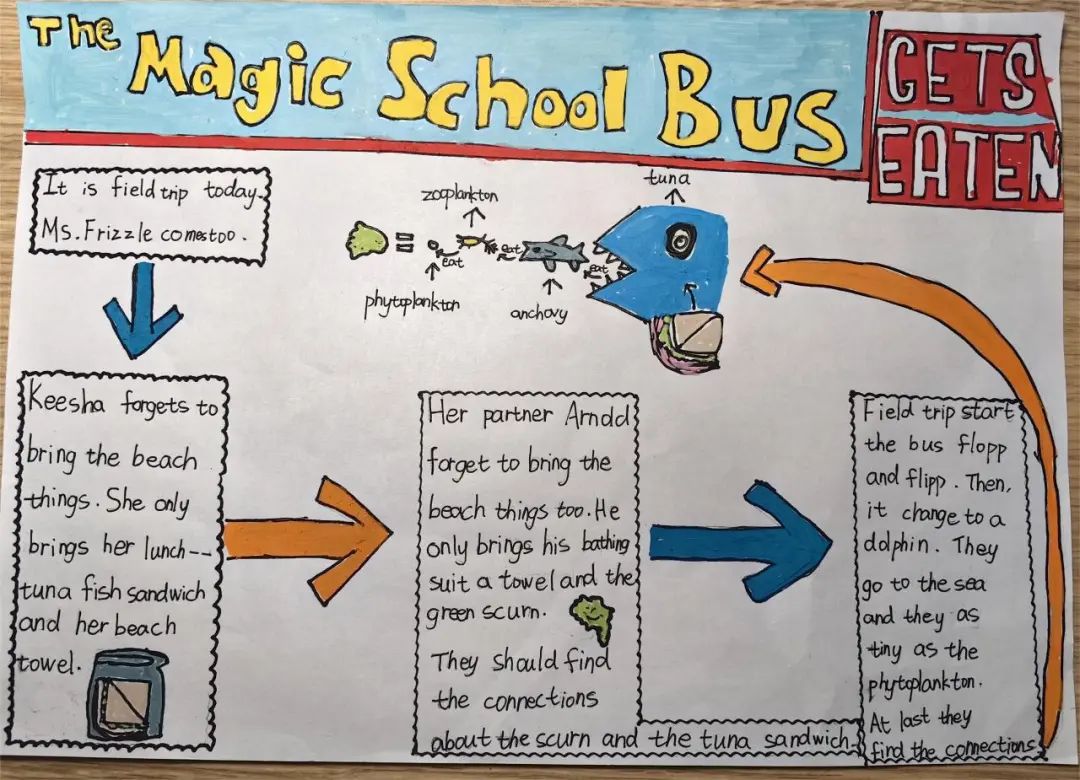 The Magic School Bus
GETS
EATEN
It is field trip today.
Ms. Frizzle comes too.
Keesha forgets to
bring the beach
things. She only
brings her lunch--
tuna fish sandwich
and her beach
towel.
Her partner Arnold
forget to bring the
beach things too. He
only brings his bathing
suit a towel and the
green scurn.
They should find
the connections
about the scurn and the tuna sandwich.
Field trip start
the bus flopp
and flipp. Then,
it change to a
dolphin. They
go to the sea
and they as
tiny as the
phytoplankton.
At last they
find the connections.
tuna
zooplankton
=
eat
eat
eat
phytoplankton
anchovy